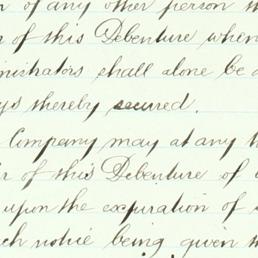 of any other person
of this Debenture when
shall alone be
thereby secured.
Company may at any
of this Debenture of
upon the expiration of
notice being given